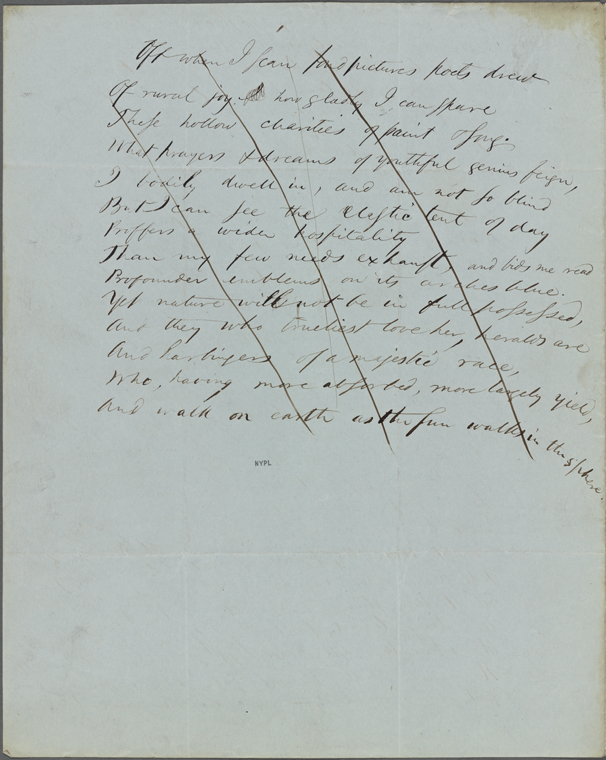 Oft when I scan fond pictures poets drew
Of rural joy how gladly I can spare
These hollow charities of paint & song.
What prayers & dreams of youthful genius feign,
I bodily dwell in, and am not so blind
But I can see the elastic tent of day
Proffers a wider hospitality
Than my few needs exhaust, and bids me read
Profounder emblems on its arches blue.
Yet nature will not be in full possessed,
And they who trueliest love her, heralds are
And harbingers of a majestic race,
Who, having more absorbed, more largely yield,
And walk on earth as the sun walks in the sphere.
NYPL